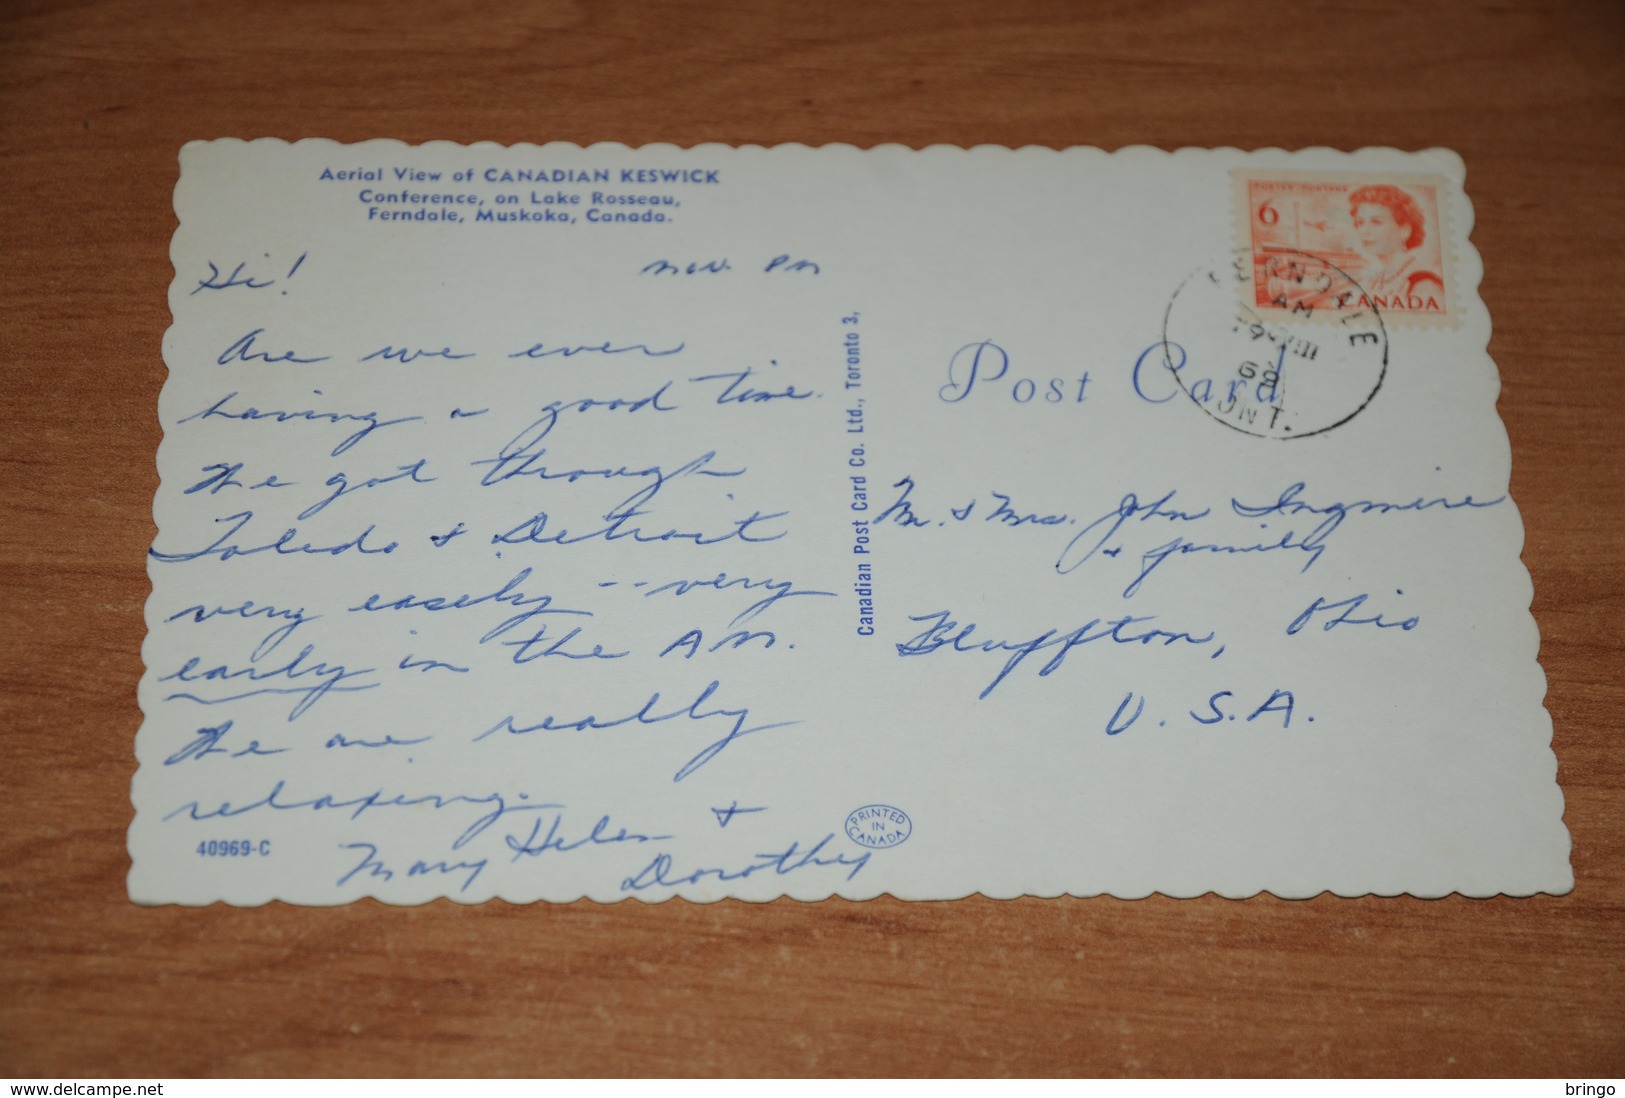 Aerial View of CANADIAN KESWICK
Conference, on Lake Rosseau,
Ferndale, Muskoka, Canada.
Hi!
PM
Are we ever
having a good time.
We got through
Toledo & Detroit
very easely -- very
early in the AM.
We are really
relaxing.
Mary Helen &
Dorothy
40969-C
Canadian Post Card Co. Ltd., Toronto 3,
PRINTED
IN
CANADA
Post Card
POSTES POSTAGE
6
CANADA
FERNDALE
AM
VIII
68
ONT.
Mr. & Mrs. John Ingmire
& family
Bluffton, Ohio
U.S.A.
www.delcampe.net
bringo